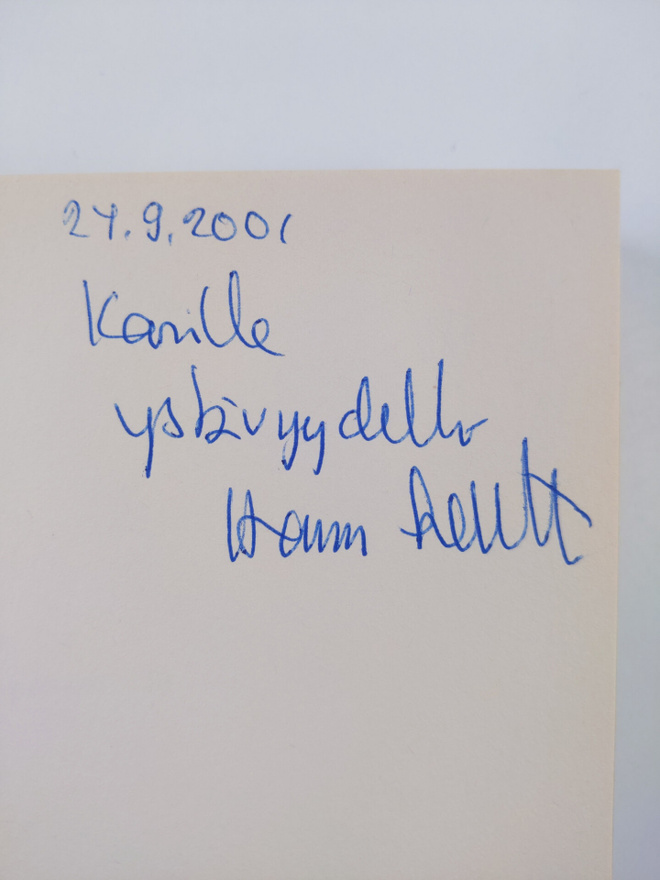 27.9.2001
Karille
ystävyydellä
Hannu